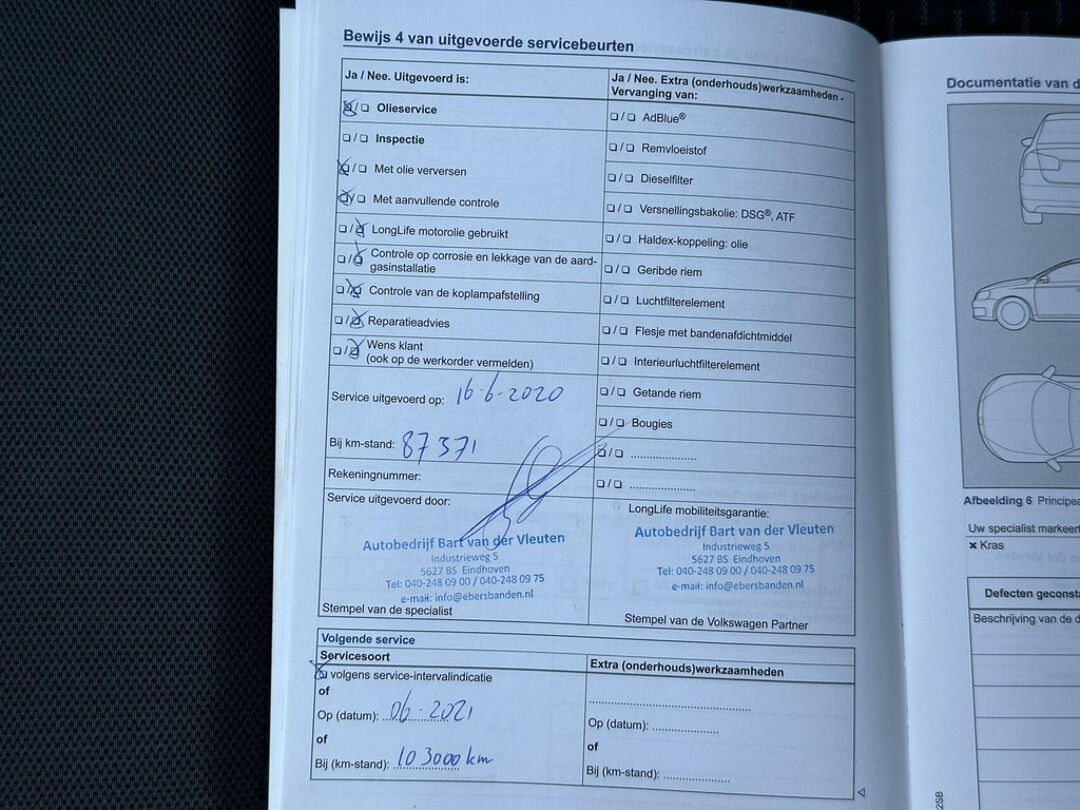 Bewijs 4 van uitgevoerde servicebeurten
Ja / Nee. Uitgevoerd is:
Olieservice
Inspectie
Met olie verversen
Met aanvullende controle
LongLife motorolie gebruikt
Controle op corrosie en lekkage van de aard-
gasinstallatie
Controle van de koplampafstelling
Reparatieadvies
Wens klant
(ook op de werkorder vermelden)
Service uitgevoerd op: 16-6-2020
Bij km-stand: 87371
Rekeningnummer:
Service uitgevoerd door:
Autobedrijf Bart van der Vleuten
Industrieweg 5
5627 BS Eindhoven
Tel: 040-248 09 00 / 040-248 09 75
e-mail: info@ebersbanden.nl
Stempel van de specialist
Ja / Nee. Extra (onderhouds)werkzaamheden -
Vervanging van:
AdBlue®
Remvloeistof
Dieselfilter
Versnellingsbakolie: DSG®, ATF
Haldex-koppeling: olie
Geribde riem
Luchtfilterelement
Flesje met bandenafdichtmiddel
Interieurluchtfilterelement
Getande riem
Bougies
LongLife mobiliteitsgarantie:
Autobedrijf Bart van der Vleuten
Industrieweg 5
5627 BS Eindhoven
Tel: 040-248 09 00 / 040-248 09 75
e-mail: info@ebersbanden.nl
Stempel van de Volkswagen Partner
Volgende service
Servicesoort
volgens service-intervalindicatie
of
Op (datum): 06-2021
of
Bij (km-stand): 103000 km
Extra (onderhouds)werkzaamheden
Op (datum):
of
Bij (km-stand):
Documentatie van d
Afbeelding 6 Principea
Uw specialist markeert
× Kras
Defecten geconsta
Beschrijving van de d